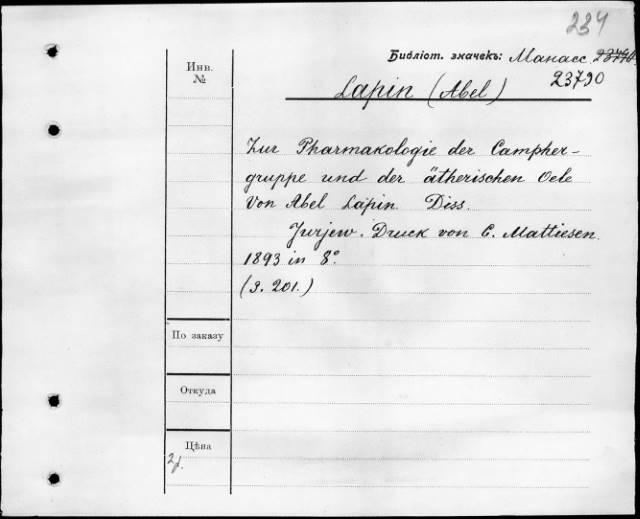 234
Библіот. значекъ: Манасс.
23790
Инв.
№
Lapin (Abel)
Zur Pharmakologie der Campher-
gruppe und der ätherischen Oele
Von Abel Lapin. Diss.
Jurjew. Druck von C. Mattiesen.
1893 in 8°.
(S. 201.)
По заказу
Откуда
Цѣна